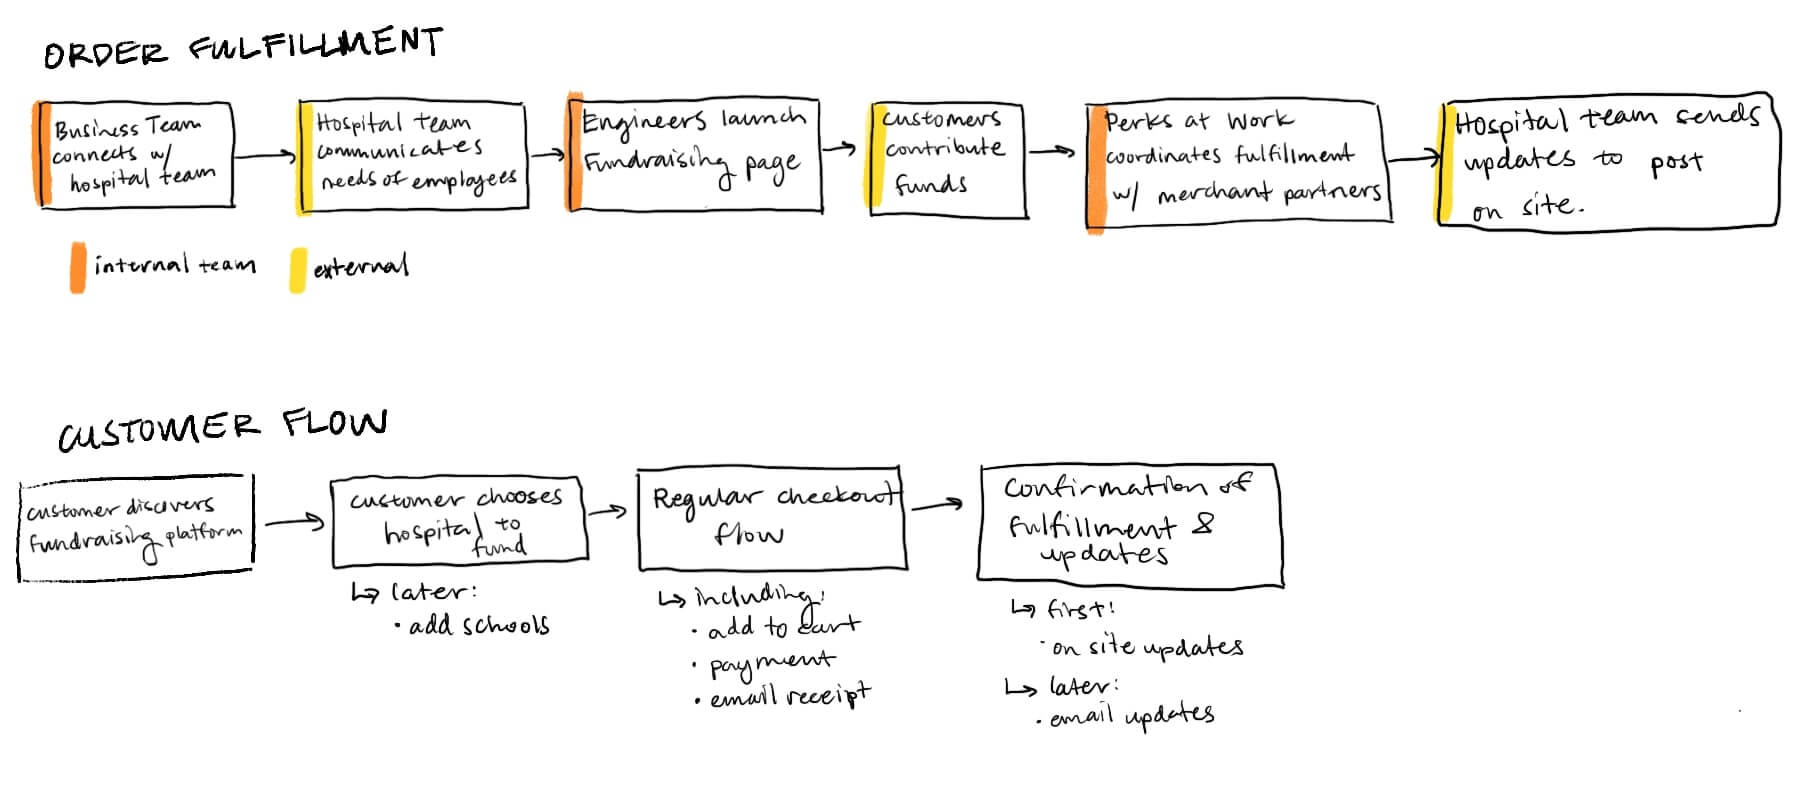 ORDER FULFILLMENT
Business Team
connects w/
hospital team
Hospital team
communicates
needs of employees
Engineers launch
Fundraising page
customers
contribute
funds
Perks at Work
coordinates fulfillment
w/ merchant partners
Hospital team sends
updates to post
on site.
internal team
external
CUSTOMER FLOW
customer discovers
fundraising platform
customer chooses
hospital to
fund
↳ later:
· add schools
Regular checkout
flow
↳ including:
· add to cart
· payment
· email receipt
Confirmation of
fulfillment &
updates
↳ first:
· on site updates
↳ later:
· email updates